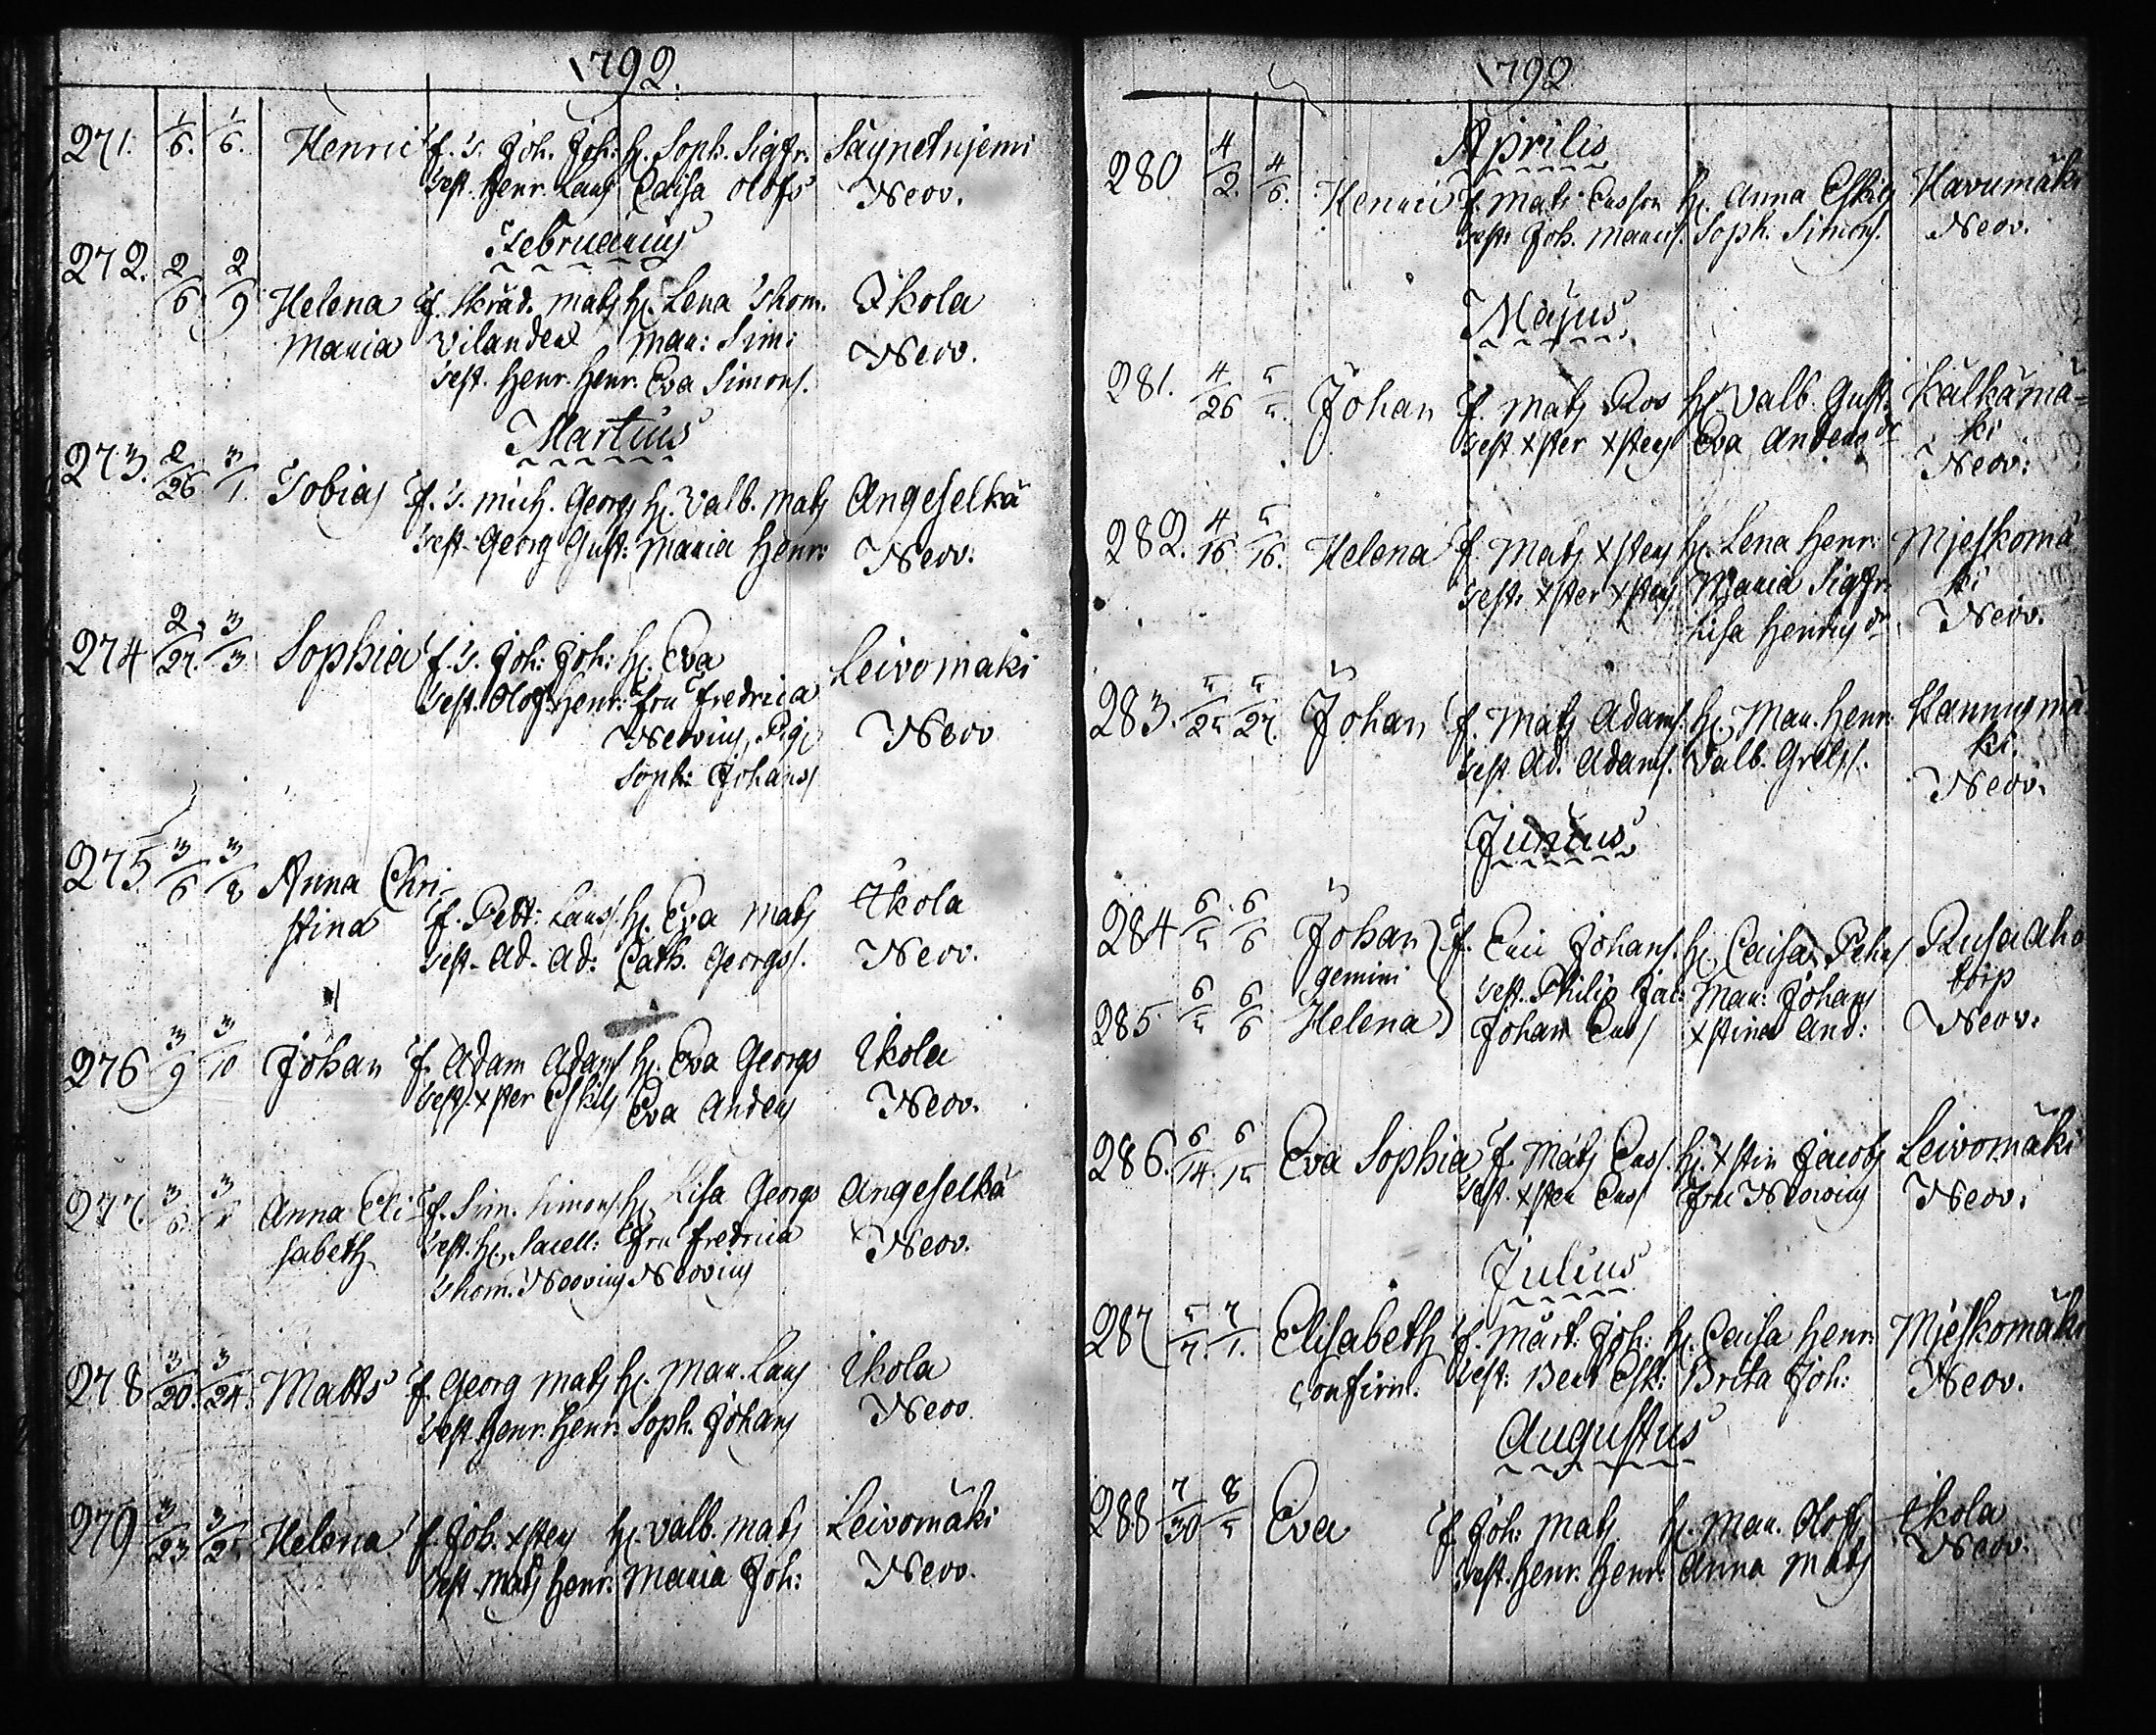 1792.
271. 1/6. 1/6. Henric f. T. Joh. Joh: H. Soph. Sigfr. Säynetnjemi
Test. Henr. Lars Caisa Olofs Neov.
Februarius
272. 2/6 2/9 Helena f. Skräd. Mats H. Lena Thom. Ikola
Maria Vilander Mar: Sim: Neov.
Test. Henr. Henr. Eva Simons.
Martius
273. 2/26 3/1. Tobias f. T. Mich. Georgs H. Valb. Mats Angeselkä
Test. Georg Gust: Maria Henr: Neov.
274 2/27. 3/3 Sophia f. T. Joh: Joh: H. Eva Leivomäki
Test. Olof Henr: Fru Fredrica
Neovius, Pig. Neov
Soph: Johans
275 3/6 3/8 Anna Chri-
stina f. Pett: Larss. H. Eva Mats Ikola
Test. Ad. Ad: Cath. Georgs. Neov.
276 3/9 3/10 Johan f. Adam Adams H. Eva Georgs Ikola
Test. Xster Eskils Eva Anders Neov.
277. 3/6. Anna Eli- f. Sim. Simons H. Lisa Georgs Angeselkä
sabeth Test. H. Sacell: Fru Fredrica Neov.
Thom. Neovius Neovius
278 3/20. 3/24. Matts f. Georg Mats H. Mar. Lars Ikola
Test. Henr. Henr: Soph. Johans Neov.
279 3/23 3/25 Helena f. Joh. Xsters H. Valb. Mats Leivomäki
Test. Mats Henr: Maria Joh: Neov.
1792
Aprilis
280 4/2. 4/6. Henric f. Mats Ersson H. Anna Eskils Havumäki
Test. Joh. Marcus. Soph. Simons. Neov.
Majus
281. 4/26 5/5. Johan f. Mats Ros H. Valb. Gust: Kälkämä-
Test Xster Xsters Eva Anders dr ki
Neov:
282. 4/16. 5/16. Helena f. Mats Xsters H. Lena Henr: Mjeskomä
Test. Xster Xsters Maria Sigfr: ki
Lisa Henrics dr Neov.
283. 5/25 5/27. Johan f. Mats Adams. H. Mar. Henr: Kannusmä
Test Ad. Adams. Valb. Grels. ki.
Neov.
Junius
284 6/5 6/6 Johan f. Eric Johans. H. Caisa Pehrs Rusaaho
gemini Test. Philip Jac: Mar: Johans torp
285 6/5 6/6 Helena Johan Ers Xstina And: Neov.
286. 6/14. 6/15 Eva Sophia f. Mats Erss. H. Xstin Jacobs Leivomäki
Test. Xster Erss Fru Neovius Neov.
Julius
287 5/7. 7/1. Elisabeth f. Märt. Joh: H. Caisa Henr: Mjeskomäki
confirm. Test: Bert Esk: Brita Joh: Neov.
Augustus
288 7/30 8/5 Eva f. Joh: Mats H. Mar. Olofs Ikola
Test. Henr. Henr: Anna Mats Neov.